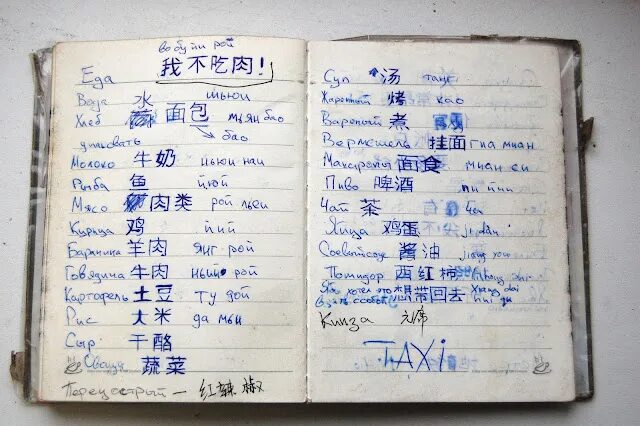 во буши рой
Еда 我不吃肉!
Вода 水 шыюи
Хлеб 面包 миян бао
упаковать бао
Молоко 牛奶 ньюи наи
Рыба 鱼 йюй
Мясо 肉类 рой льеи
Курица 鸡
Баранина 羊肉 янг рой
Говядина 牛肉 ный рой
Картофель 土豆 ту дой
Рис 大米 да мьи
Сыр 干酪
Овощи 蔬菜
Перец острый — 红辣椒
Суп 汤 танг
Жаренный 烤 као
Вареный 煮
Вермешель 挂面 гиа миан
Макароны 面食 миан еи
Пиво 啤酒 пи йии
Чай 茶 ча
Яйца 鸡蛋 ji dàn
Соевый соус 酱油 jiang you
Помидор 西红柿
想带回去 Xiang dai
взять с собой hui qu
Кинза 元席
TAXi